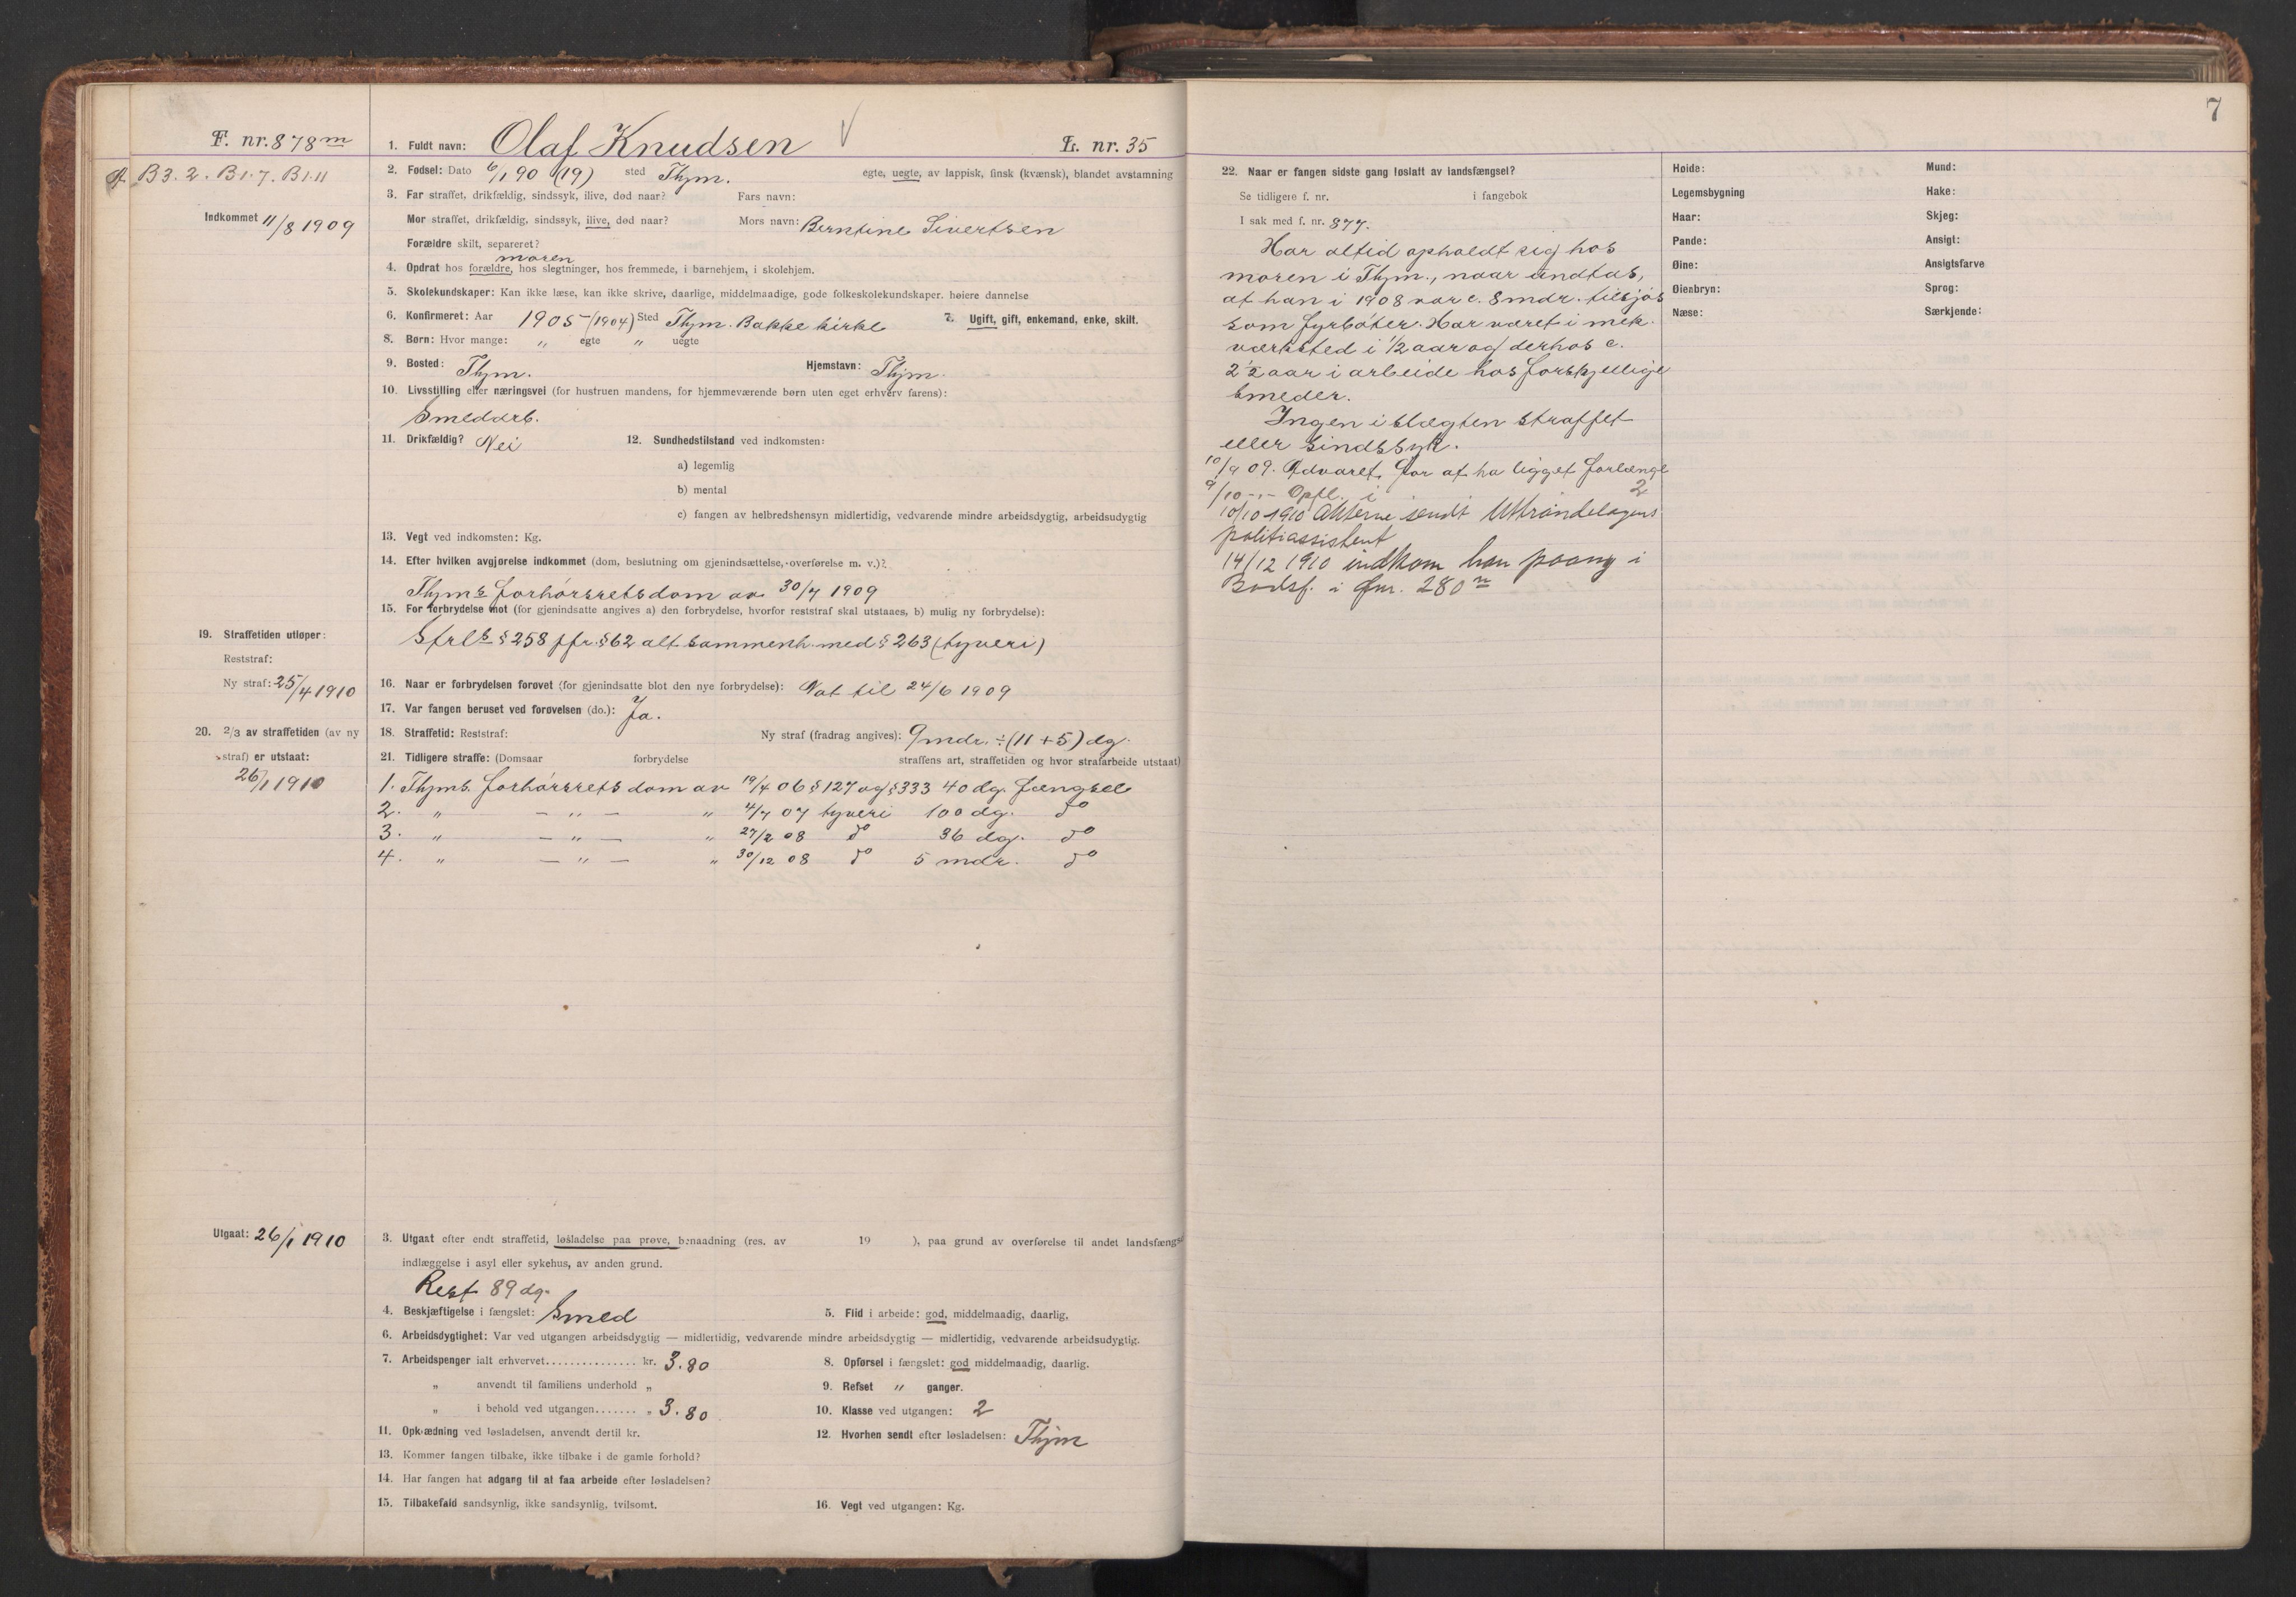 F. nr. 878 m
1. Fuldt navn: Olaf Knudsen
L. nr. 35
B3. 2. B1. 7. B1. 11
2. Fødsel: Dato 6/1 90 (19) sted Thjm. egte, uegte, av lappisk, finsk (kvænsk), blandet avstamning
3. Far straffet, drikfældig, sindssyk, ilive, død naar? Fars navn:
Indkommet 11/8 1909
Mor straffet, drikfældig, sindssyk, ilive, død naar? Mors navn: Berntine Sivertsen
Forældre skilt, separeret?
moren
4. Opdrat hos forældre, hos slegtninger, hos fremmede, i barnehjem, i skolehjem.
5. Skolekundskaper: Kan ikke læse, kan ikke skrive, daarlige, middelmaadige, gode folkeskolekundskaper, høiere dannelse
6. Konfirmeret: Aar 1905 (1904) Sted Thjm. Bakke kirke 7. Ugift, gift, enkemand, enke, skilt.
8. Børn: Hvor mange: " egte " uegte
9. Bosted: Thjm. Hjemstavn: Thjm.
10. Livsstilling eller næringsvei (for hustruen mandens, for hjemmeværende børn uten eget erhverv farens):
Smedarb.
11. Drikfældig? Nei 12. Sundhedstilstand ved indkomsten:
a) legemlig
b) mental
c) fangen av helbredshensyn midlertidig, vedvarende mindre arbeidsdygtig, arbeidsudygtig
13. Vegt ved indkomsten: Kg.
14. Efter hvilken avgjørelse indkommet (dom, beslutning om gjenindsættelse, overførelse m. v.)?
Thjms forhørsretsdom av 30/7 1909
15. For forbrydelse mot (for gjenindsatte angives a) den forbrydelse, hvorfor reststraf skal utstaaes, b) mulig ny forbrydelse):
Strls § 258 jfr. § 62 alt sammenh. med § 263 (tyveri)
19. Straffetiden utløper:
Reststraf:
Ny straf: 25/4 1910
16. Naar er forbrydelsen forøvet (for gjenindsatte blot den nye forbrydelse): Nat til 24/6 1909
17. Var fangen beruset ved forøvelsen (do.): Ja.
20. 2/3 av straffetiden (av ny straf) er utstaat:
26/1 1910
18. Straffetid: Reststraf: Ny straf (fradrag angives): 9 mdr. ÷ (11 + 5) dg.
21. Tidligere straffe: (Domsaar forbrydelse straffens art, straffetiden og hvor strafarbeide utstaat)
1. Thjms. forhørsrets dom av 19/4 06 § 127 og § 333 40 dg. fængsel
2. " — " — " 4/7 07 tyveri 100 dg. do
3. " — " — " 27/2 08 do 36 dg. do
4. " — " — " 30/12 08 do 5 mdr. do
Utgaat: 26/1 1910
3. Utgaat efter endt straffetid, løsladelse paa prøve, benaadning (res. av 19 ), paa grund av overførelse til andet landsfængsel
indlæggelse i asyl eller sykehus, av anden grund.
Rest 89 dg.
4. Beskjæftigelse i fængslet: Smed 5. Flid i arbeide: god, middelmaadig, daarlig,
6. Arbeidsdygtighet: Var ved utgangen arbeidsdygtig — midlertidig, vedvarende mindre arbeidsdygtig — midlertidig, vedvarende arbeidsudygtig.
7. Arbeidspenger ialt erhvervet............... kr. 3.80 8. Opførsel i fængslet: god middelmaadig, daarlig.
" anvendt til familiens underhold " 9. Refset " ganger.
" i behold ved utgangen....... " 3.80 10. Klasse ved utgangen: 2
11. Opklædning ved løsladelsen, anvendt dertil kr. 12. Hvorhen sendt efter løsladelsen: Thjm
13. Kommer fangen tilbake, ikke tilbake i de gamle forhold?
14. Har fangen hat adgang til at faa arbeide efter løsladelsen?
15. Tilbakefald sandsynlig, ikke sandsynlig, tvilsomt. 16. Vegt ved utgangen: Kg.
7
22. Naar er fangen sidste gang løslatt av landsfængsel?
Se tidligere f. nr. i fangebok
I sak med f. nr. 877.
Har altid opholdt sig hos
moren i Thjm., naar undtas,
at han i 1908 var c. 8 mdr. tilsjøs
som fyrbøter. Har været i mek.
værksted i 1/2 aar og derhos c.
2 1/2 aar i arbeide hos forskjellige
smeder.
Ingen i slægten straffet
eller sindssyk.
10/9 09. Advaret for at ha ligget forlænge
9/10 -"- Opfl. i 2
10/10 1910 Akterne sendt Uttrøndelagens
politiassistent
14/12 1910 indkom han paany i
Bodsf. i fnr. 280 n
Høide:
Legemsbygning
Haar:
Pande:
Øine:
Øienbryn:
Næse:
Mund:
Hake:
Skjeg:
Ansigt:
Ansigtsfarve
Sprog:
Særkjende: